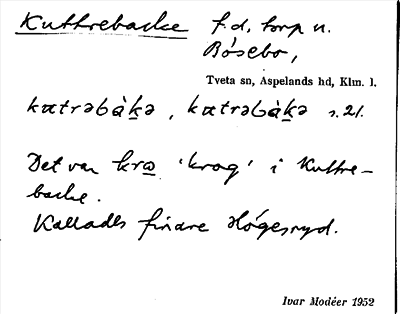 Kuttrebacke f.d. torp u.
Bösebo,
Tveta sn, Aspelands hd, Klm. l.
kɑtrəbàkə, kɑtrəbàkə s. 21.
Det var krɷ 'krog' i Kuttre-
backe.
Kallades finare Högesryd.
Ivar Modéer 1952